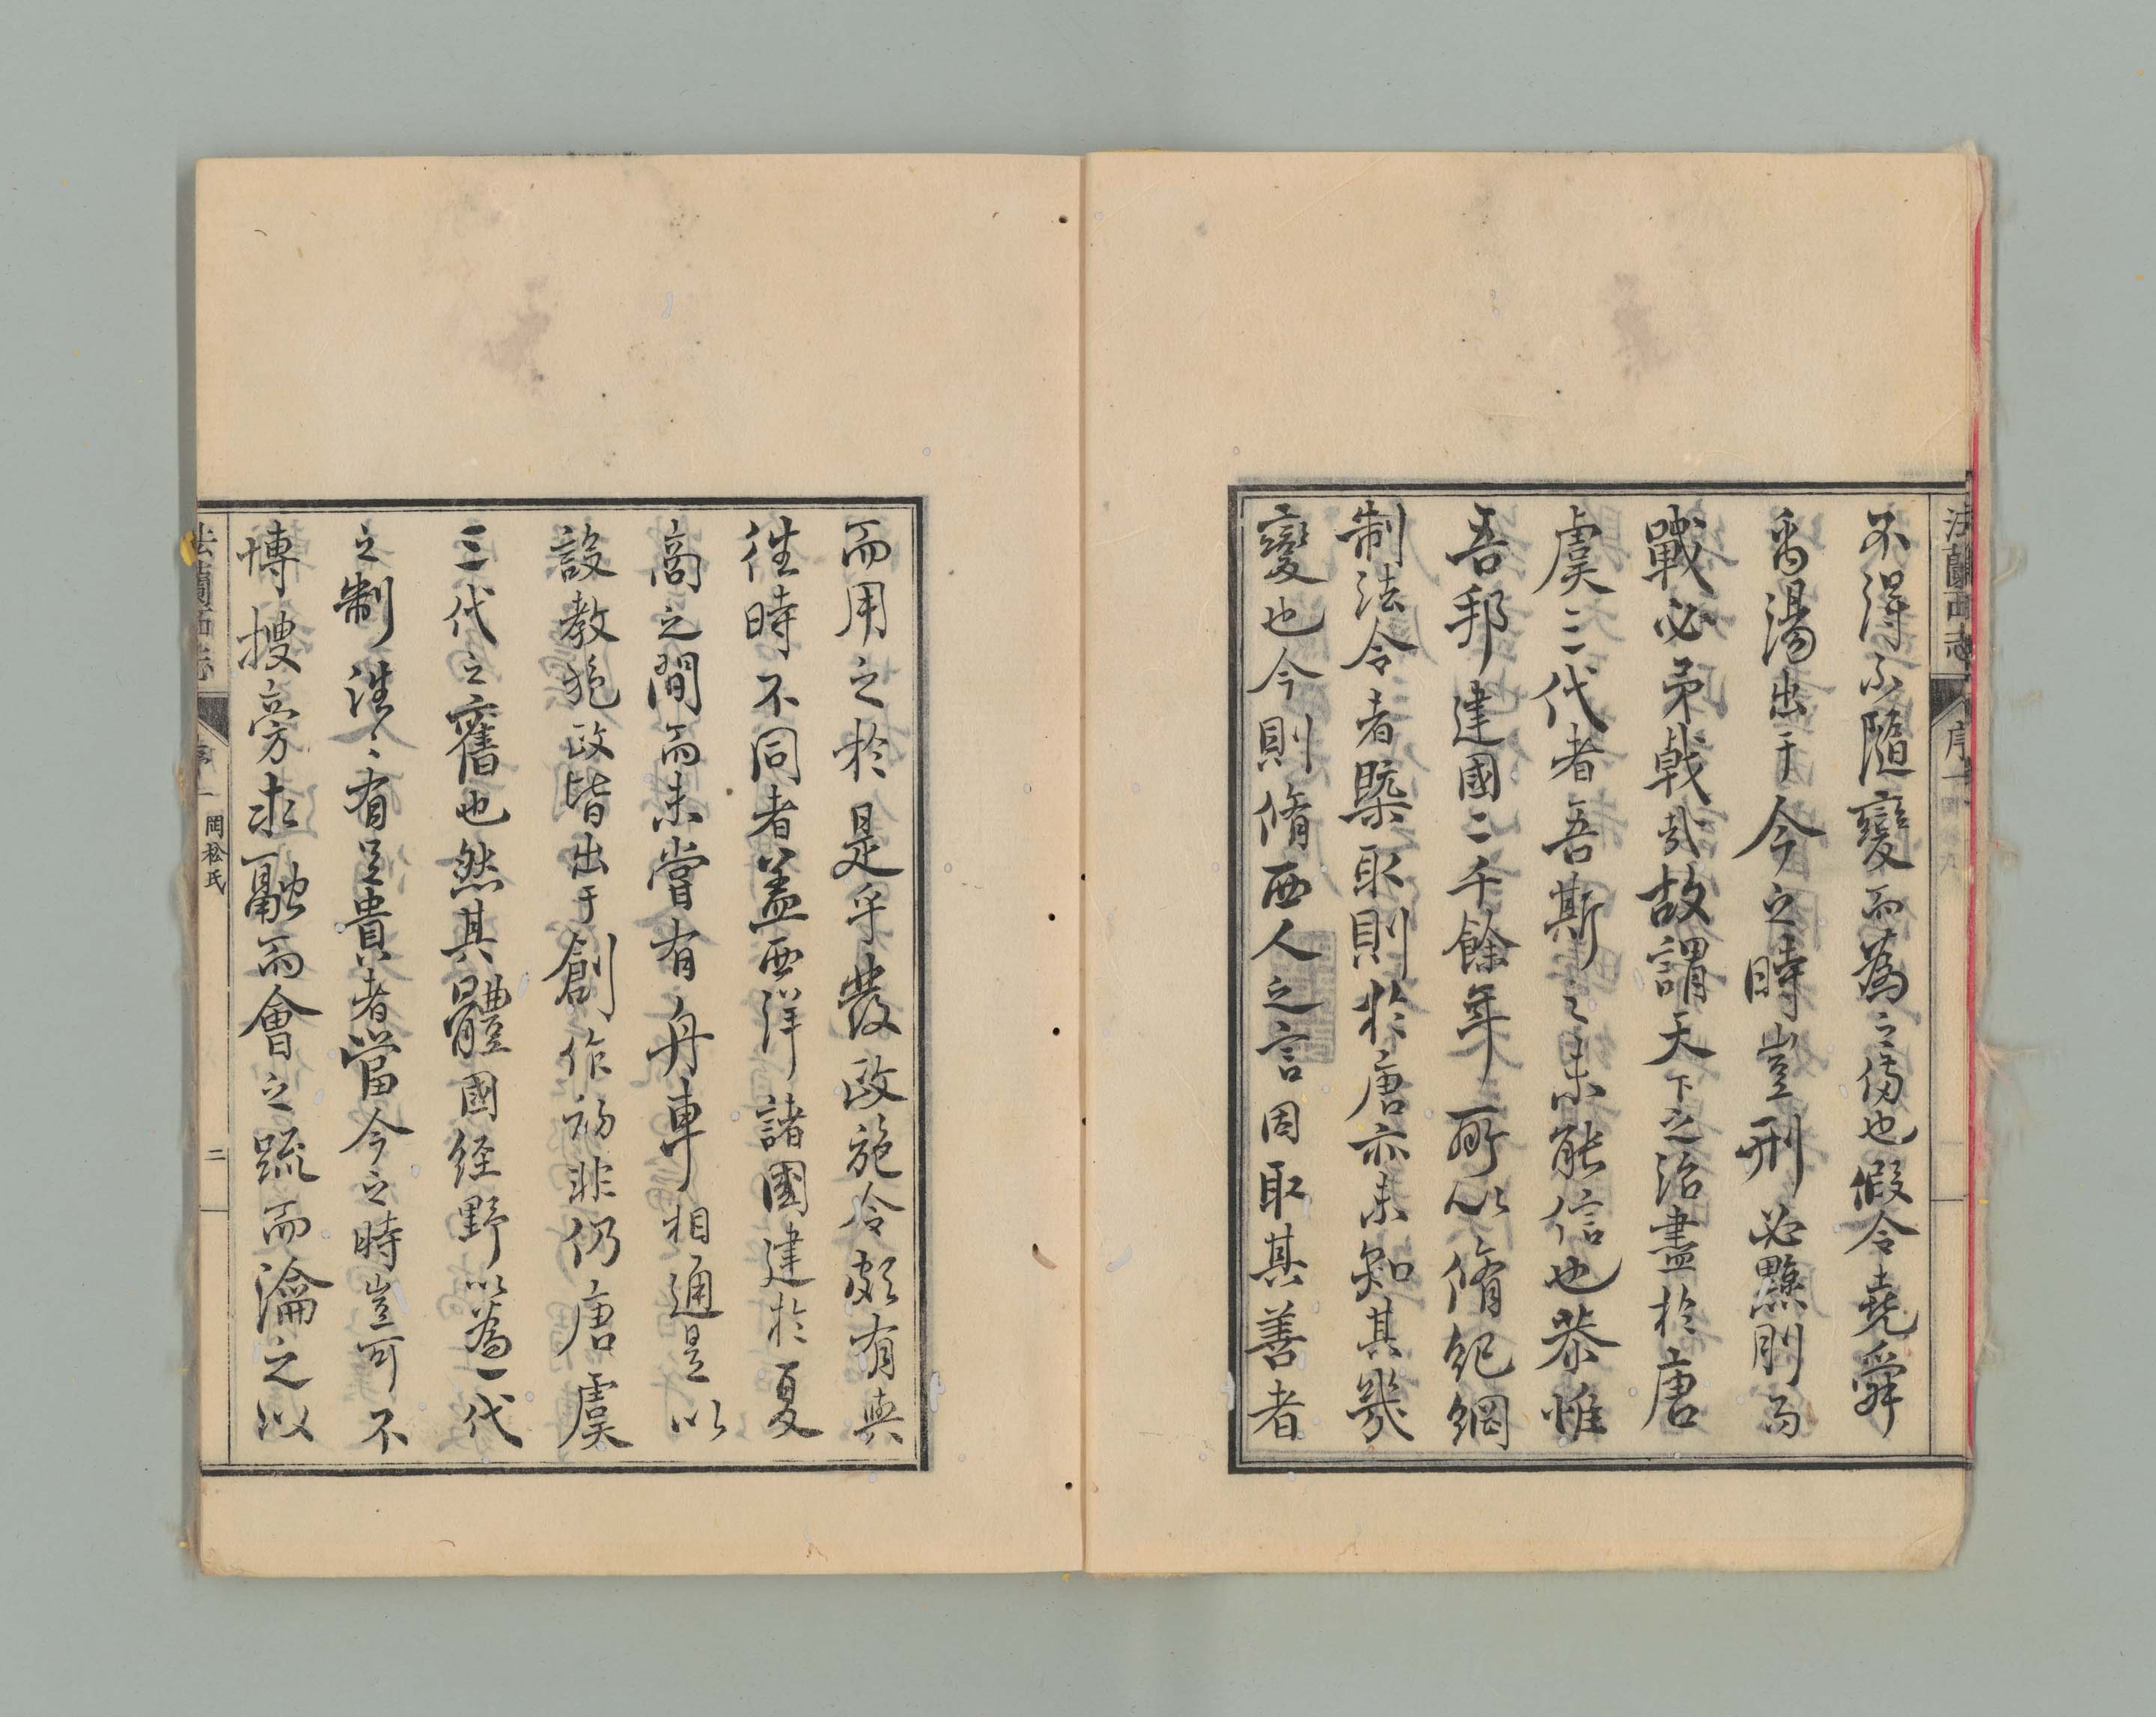 法蘭西志 序 一
不得不隨變而為之備也假令堯舜
禹湯出于今之時豈刑必黥刖而
戰必矛戟哉故謂天下之治盡於唐
虞三代者吾斯之未能信也恭惟
吾邦建國二千餘年所以脩紀綱
制法令者槩取則於唐亦未知其幾
變也今則脩西人之言因取其善者
而用之於是乎發政施令頗有與
徃時不同者盖西洋諸國建於夏
商之間而未嘗有舟車相通是以
設教施政皆出于創作初非仍唐虞
三代之舊也然其體國経野以為一代
之制法、有足貴者當今之時豈可不
博搜旁求融而會之疏而瀹之以
法蘭西志 序 二 岡松氏